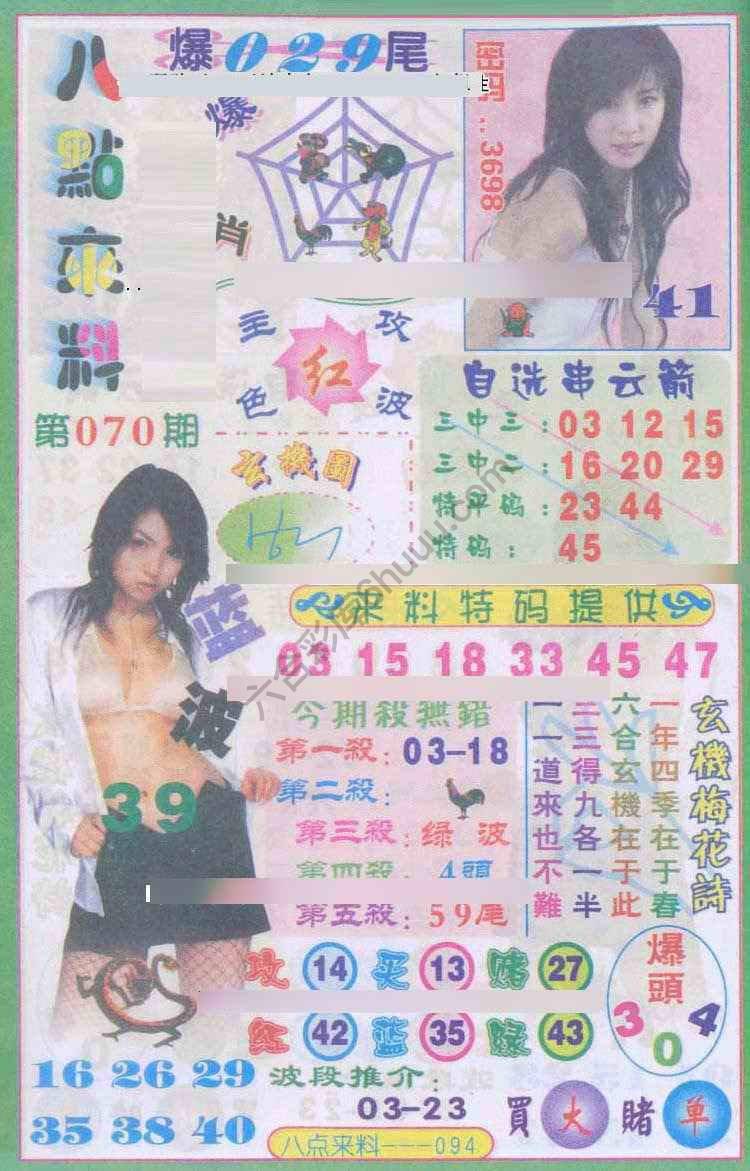 爆029尾
八點來料
爆
肖
密码:..3698
41
主攻
红
色波
第070期
自选串云箭
三中三:03 12 15
三中二:16 20 29
特平码:23 44
特码:45
玄機圖
来料特码提供
03 15 18 33 45 47
蓝波
39
今期殺無錯
第一殺:03-18
第二殺:
第三殺:绿波
第四殺:4頭
第五殺:59尾
玄機梅花詩
一年四季在于春
六合玄機在于此
二三得九各一半
一一道來也不難
攻14 买13 赌27
红42 蓝35 绿43
爆頭
3 0 4
16 26 29
35 38 40
波段推介:
03-23
買大 賭单
八点来料---094
六合彩图shuuu.com